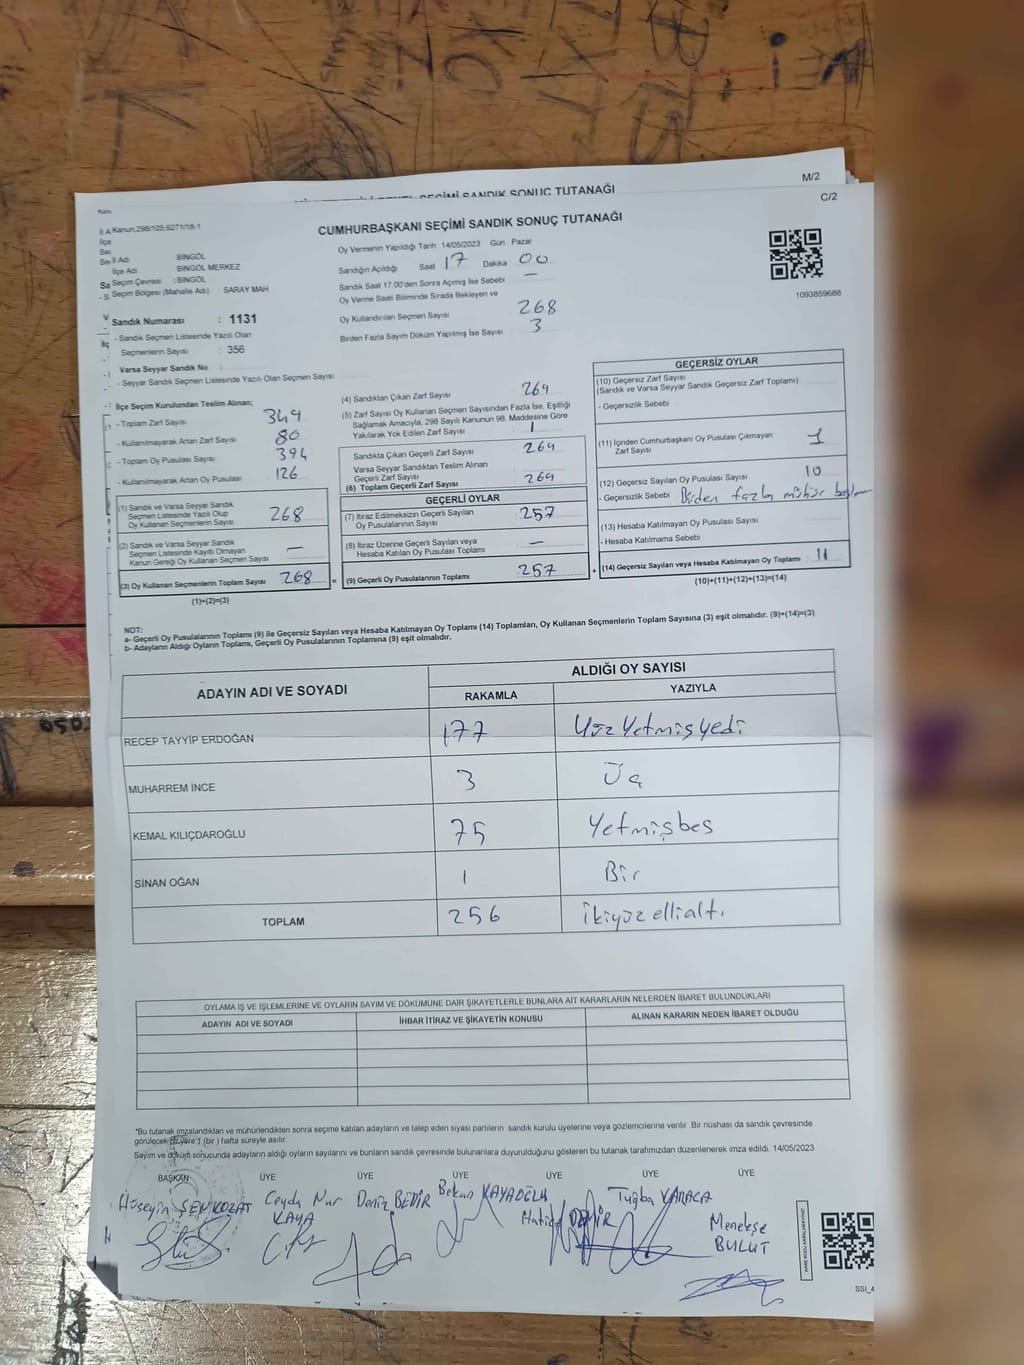 M/2
SEÇİMİ SANDIK SONUÇ TUTANAĞI
C/2
Kanun.298/105;6271/18-1
CUMHURBAŞKANI SEÇİMİ SANDIK SONUÇ TUTANAĞI
İl Adı BİNGÖL
İlçe Adı BİNGÖL MERKEZ
Seçim Çevresi : BİNGÖL
Seçim Bölgesi (Mahalle Adı) SARAY MAH
Sandık Numarası : 1131
- Sandık Seçmen Listesinde Yazılı Olan
Seçmenlerin Sayısı : 356
Varsa Seyyar Sandık No :
- Seyyar Sandık Seçmen Listesinde Yazılı Olan Seçmen Sayısı
Oy Vermenin Yapıldığı Tarih 14/05/2023 Gün Pazar
Sandığın Açıldığı Saat 17 Dakika 00
Sandık Saat 17:00'den Sonra Açılmış İse Sebebi —
Oy Verme Saati Bitiminde Sırada Bekleyen ve
Oy Kullandırılan Seçmen Sayısı 268
Birden Fazla Sayım Döküm Yapılmış İse Sayısı 3
1093859688
İlçe Seçim Kurulundan Teslim Alınan;
- Toplam Zarf Sayısı 349
- Kullanılmayarak Artan Zarf Sayısı 80
- Toplam Oy Pusulası Sayısı 394
- Kullanılmayarak Artan Oy Pusulası 126
(1) Sandık ve Varsa Seyyar Sandık
Seçmen Listesinde Yazılı Olup
Oy Kullanan Seçmenlerin Sayısı 268
(2) Sandık ve Varsa Seyyar Sandık
Seçmen Listesinde Kayıtlı Olmayan
Kanun Gereği Oy Kullanan Seçmen Sayısı —
(3) Oy Kullanan Seçmenlerin Toplam Sayısı 268
(1)+(2)=(3)
(4) Sandıktan Çıkan Zarf Sayısı 269
(5) Zarf Sayısı Oy Kullanan Seçmen Sayısından Fazla İse, Eşitliği
Sağlamak Amacıyla, 298 Sayılı Kanunun 98. Maddesine Göre
Yakılarak Yok Edilen Zarf Sayısı 1
Sandıkta Çıkan Geçerli Zarf Sayısı 269
Varsa Seyyar Sandıktan Teslim Alınan
Geçerli Zarf Sayısı
(6) Toplam Geçerli Zarf Sayısı 269
GEÇERLİ OYLAR
(7) İtiraz Edilmeksizin Geçerli Sayılan
Oy Pusulalarının Sayısı 257
(8) İtiraz Üzerine Geçerli Sayılan veya
Hesaba Katılan Oy Pusulası Toplamı —
= (9) Geçerli Oy Pusulalarının Toplamı 257
GEÇERSİZ OYLAR
(10) Geçersiz Zarf Sayısı
(Sandık ve Varsa Seyyar Sandık Geçersiz Zarf Toplamı)
- Geçersizlik Sebebi
(11) İçinden Cumhurbaşkanı Oy Pusulası Çıkmayan
Zarf Sayısı 1
(12) Geçersiz Sayılan Oy Pusulası Sayısı 10
- Geçersizlik Sebebi Birden fazla mühür
(13) Hesaba Katılmayan Oy Pusulası Sayısı
- Hesaba Katılmama Sebebi
+ (14) Geçersiz Sayılan veya Hesaba Katılmayan Oy Toplamı 11
(10)+(11)+(12)+(13)=(14)
NOT:
a- Geçerli Oy Pusulalarının Toplamı (9) ile Geçersiz Sayılan veya Hesaba Katılmayan Oy Toplamı (14) Toplamları, Oy Kullanan Seçmenlerin Toplam Sayısına (3) eşit olmalıdır. (9)+(14)=(3)
b- Adayların Aldığı Oyların Toplamı, Geçerli Oy Pusulalarının Toplamına (9) eşit olmalıdır.
ADAYIN ADI VE SOYADI ALDIĞI OY SAYISI
RAKAMLA YAZIYLA
RECEP TAYYİP ERDOĞAN 177 Yüz Yetmiş yedi
MUHARREM İNCE 3 Üç
KEMAL KILIÇDAROĞLU 75 Yetmişbeş
SİNAN OĞAN 1 Bir
TOPLAM 256 ikiyüz ellialtı
OYLAMA İŞ VE İŞLEMLERİNE VE OYLARIN SAYIM VE DÖKÜMÜNE DAİR ŞİKAYETLERLE BUNLARA AİT KARARLARIN NELERDEN İBARET BULUNDUKLARI
ADAYIN ADI VE SOYADI İHBAR İTİRAZ VE ŞİKAYETİN KONUSU ALINAN KARARIN NEDEN İBARET OLDUĞU
*Bu tutanak imzalandıktan ve mühürlendikten sonra seçime katılan adayların ve talep eden siyasi partilerin sandık kurulu üyelerine veya gözlemcilerine verilir. Bir nüshası da sandık çevresinde
görülecek bir yere 1 (bir ) hafta süreyle asılır.
Sayım ve döküm sonucunda adayların aldığı oyların sayılarını ve bunların sandık çevresinde bulunanlara duyurulduğunu gösteren bu tutanak tarafımızdan düzenlenerek imza edildi. 14/05/2023
BAŞKAN ÜYE ÜYE ÜYE ÜYE ÜYE ÜYE
Hüseyin ŞENKOZAT Ceyda Nur KAYA Deniz BEDİR Bekan KAYAOĞLU Hatice DEMİR Tuğba KARACA Menekşe BULUT